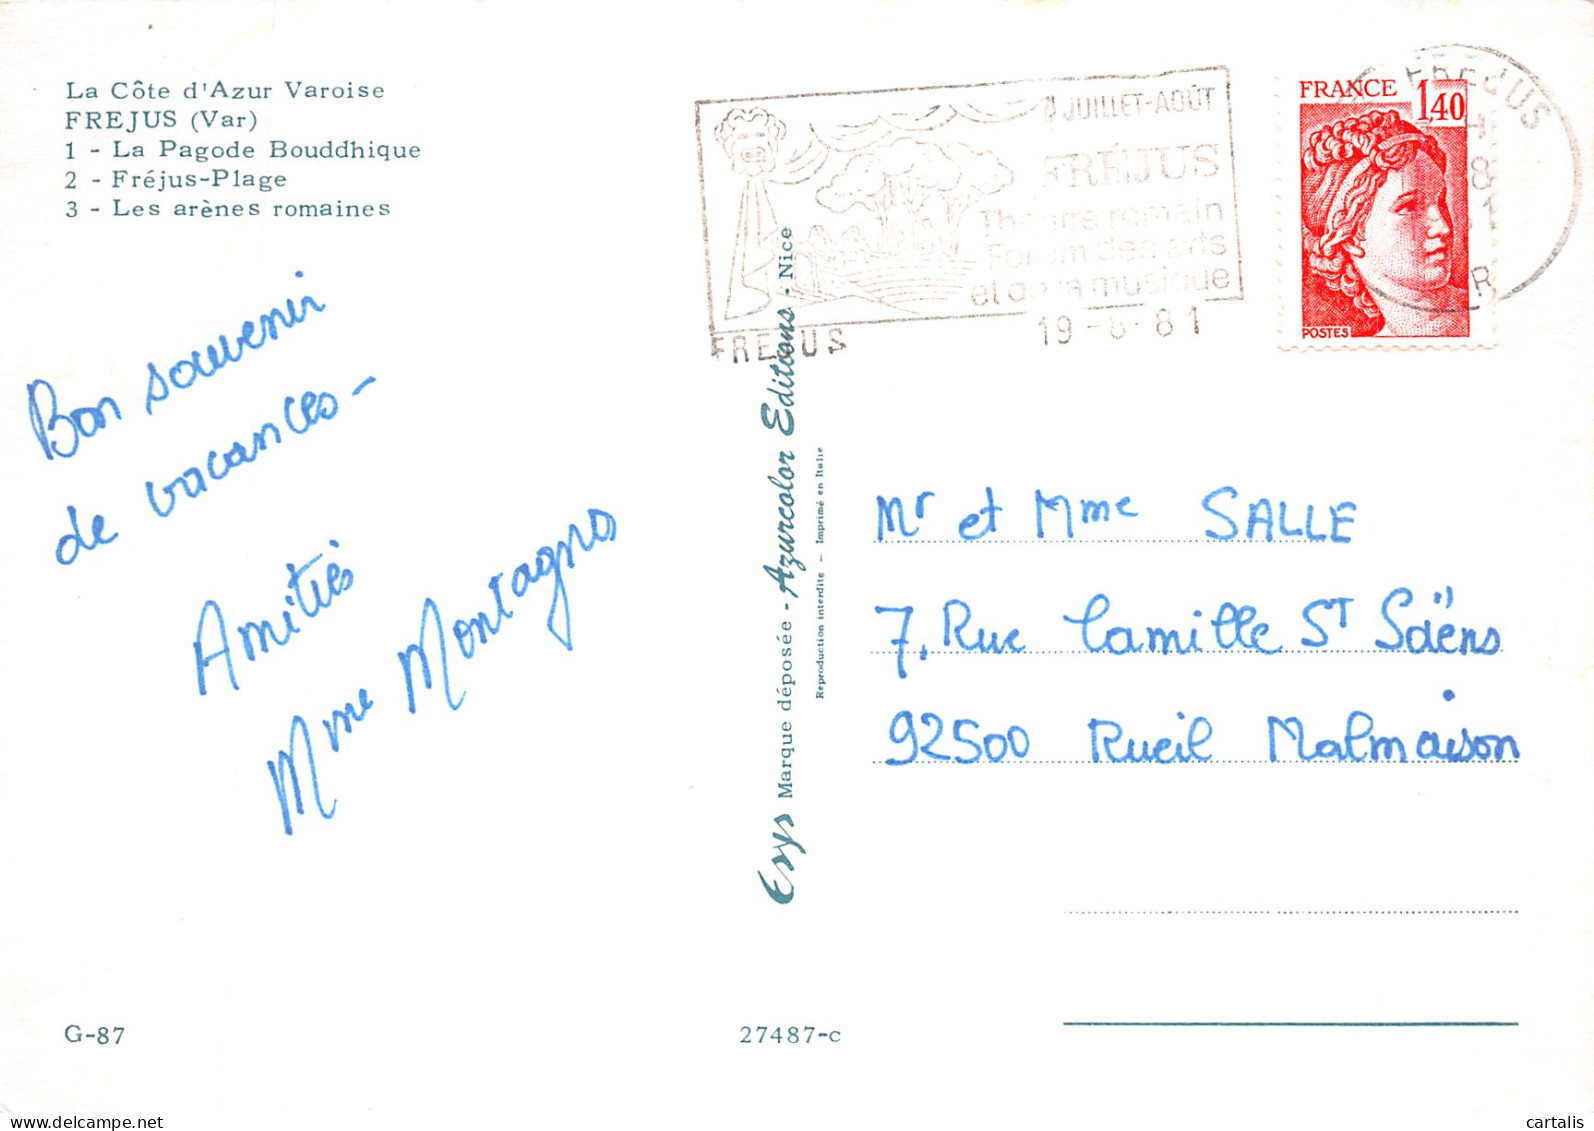 La Côte d'Azur Varoise
FREJUS (Var)
1 - La Pagode Bouddhique
2 - Fréjus-Plage
3 - Les arènes romaines
JUILLET-AOÛT
FRÉJUS
Théâtre romain
Forum des arts
et de la musique
FREJUS
19-8-81
FRANCE 1,40
POSTES
FREJUS
Bon souvenir
de vacances -
Amitiés
Mme Montagno
Erys Marque déposée - Azurcolor Editions - Nice
Reproduction interdite - Imprimé en Italie
Mr et Mme SALLE
7, Rue Camille ST Saëns
92500 Rueil Malmaison
G-87
27487-c
cartalis